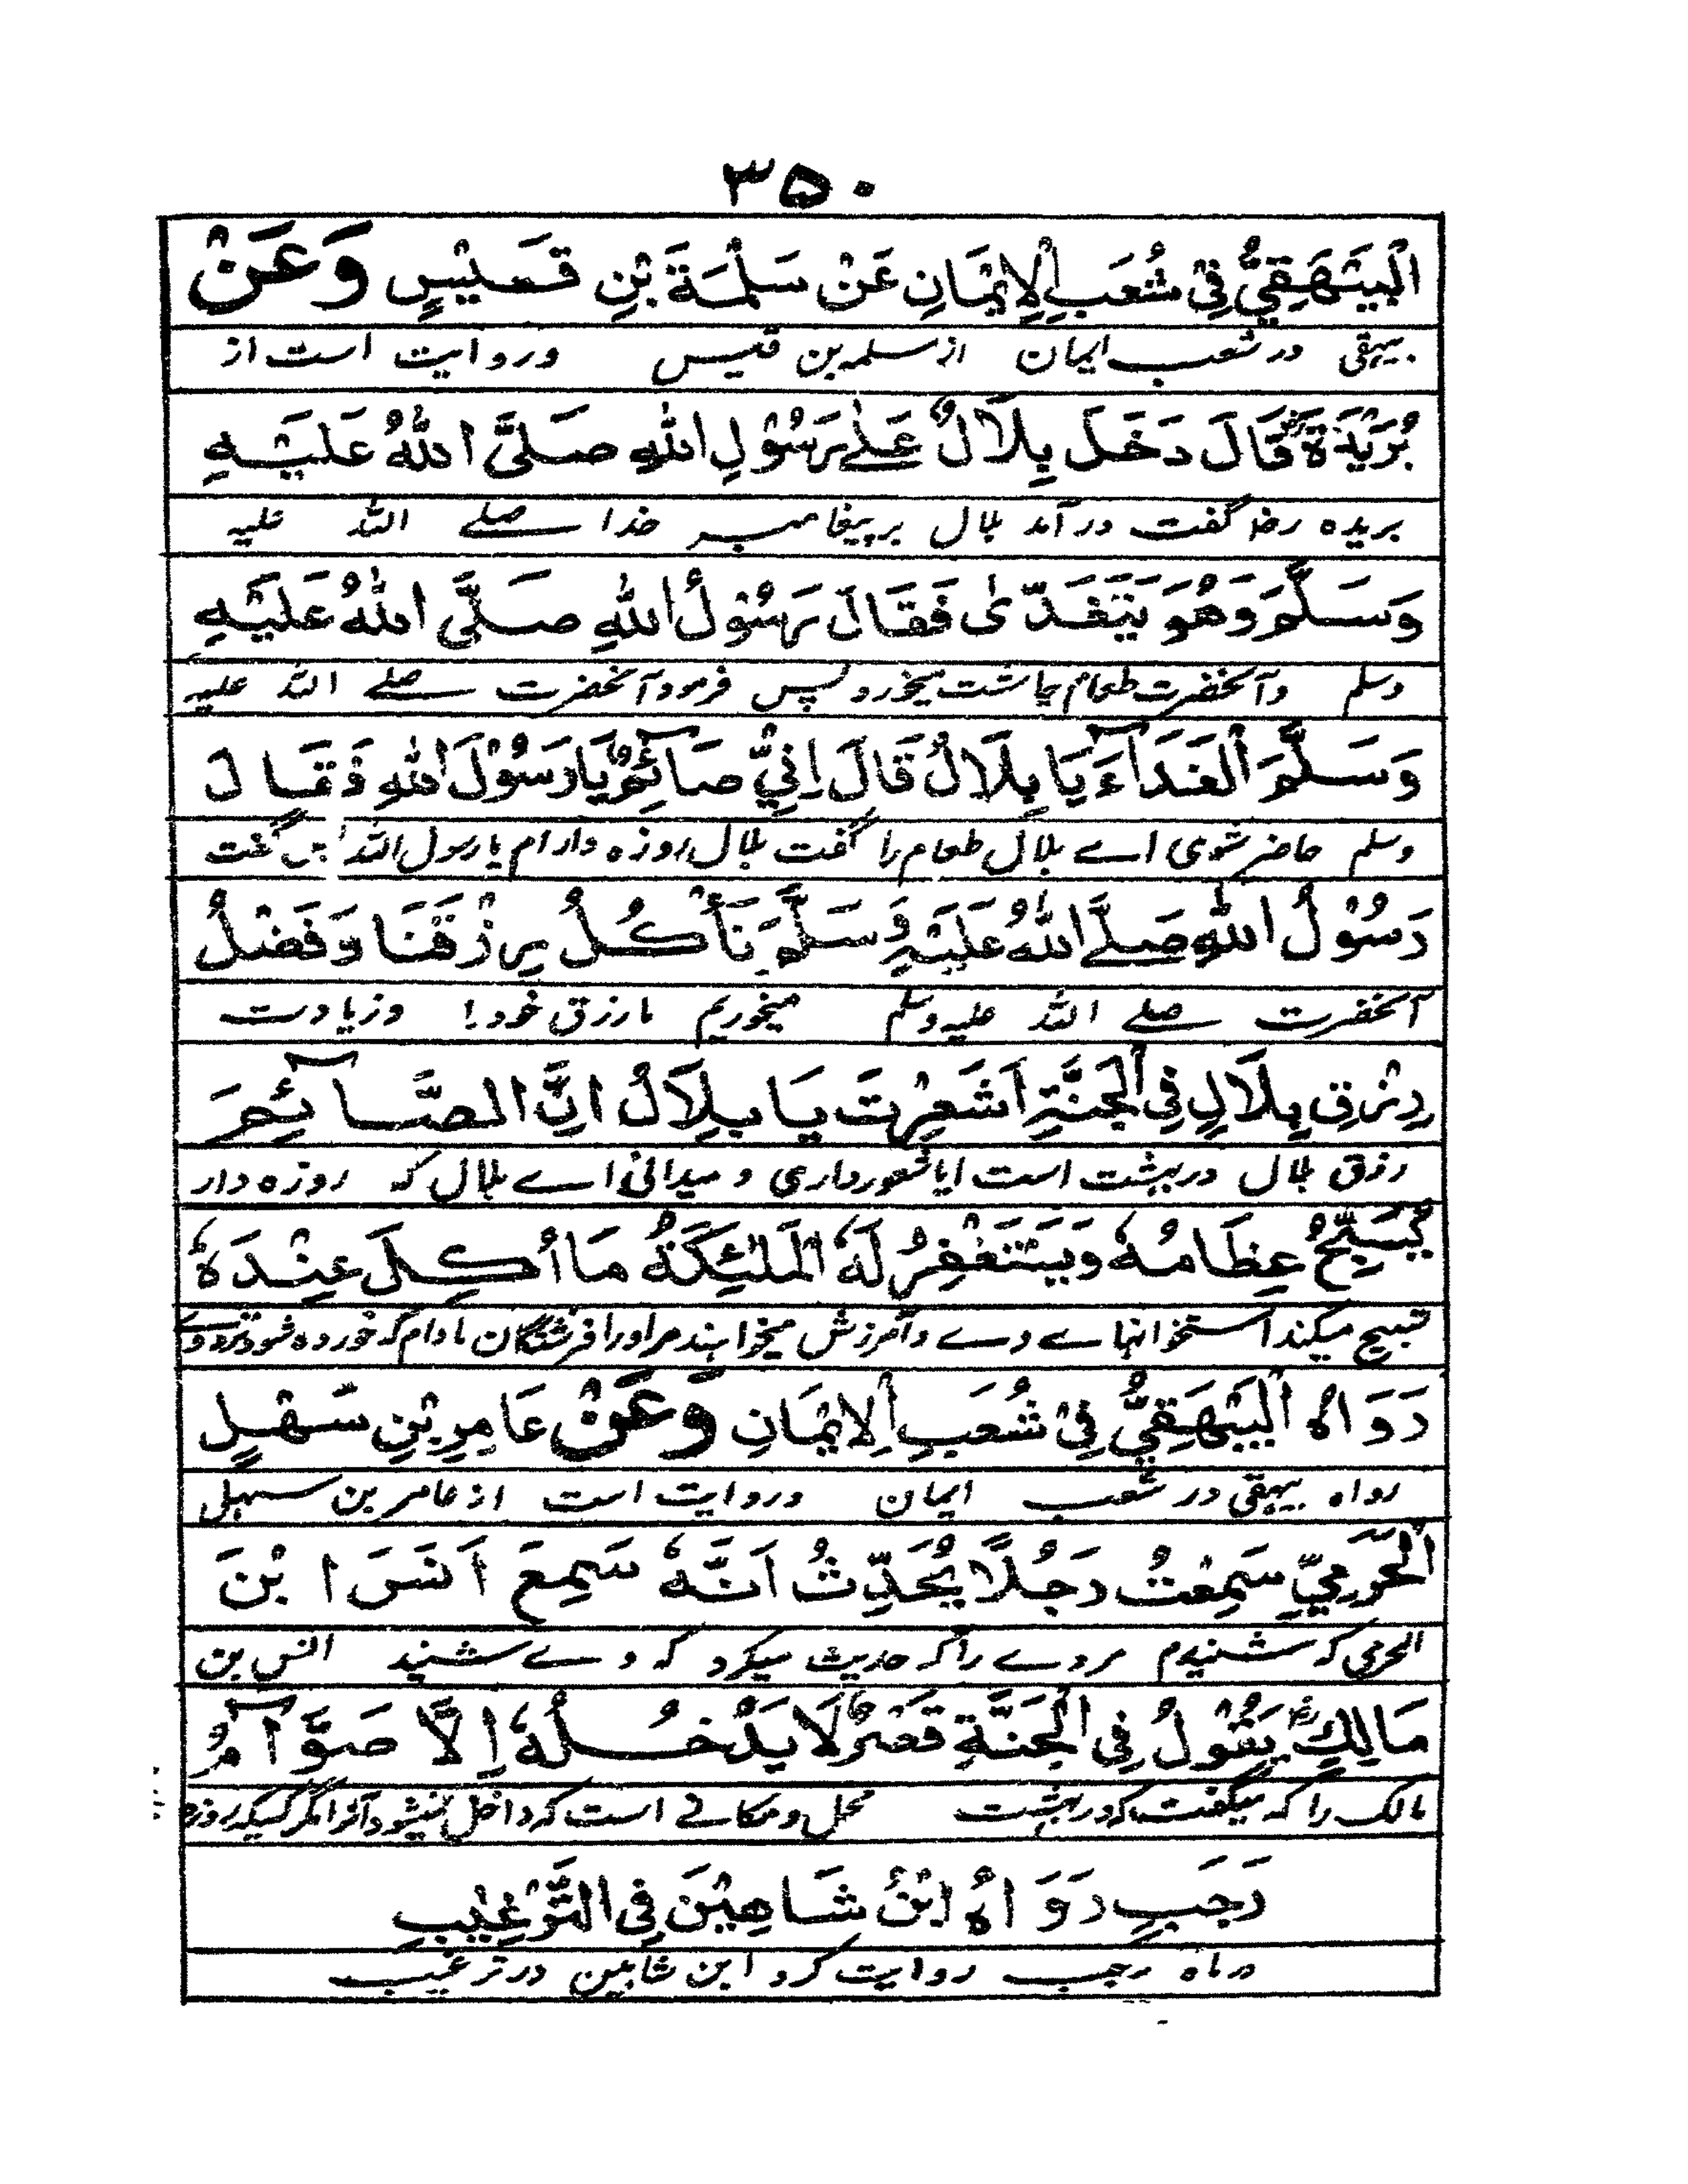 ۳۵۰
الْبَيْهَقِيُّ فِيْ شُعَبِ الْاِيْمَانِ عَنْ سَلَمَةَ بْنِ قَيْسٍ وَعَنْ
بیہقی در شعب ایمان از سلمہ بن قیس وروایت است از
بُرَيْدَةَ رض قَالَ دَخَلَ بِلَالٌ عَلٰے رَسُوْلِ اللّٰهِ صَلَّى اللّٰهُ عَلَيْهِ
بریدہ رضہ گفت در آمد بلال بر پیغامبر خدا صلے اللہ علیہ
وَسَلَّمَ وَهُوَ يَتَغَدّٰى فَقَالَ رَسُوْلُ اللّٰهِ صَلَّى اللّٰهُ عَلَيْهِ
وسلم وآنحضرت طعام چاشت میخورد پس فرمود آنحضرت صلے اللہ علیہ
وَسَلَّمَ الْغَدَآءَ يَا بِلَالُ قَالَ اِنِّيْ صَآئِمٌ يَا رَسُوْلَ اللّٰهِ فَقَالَ
وسلم حاضر شوی اے بلال طعام را گفت بلال روزہ دار ام یا رسول اللہ پس گفت
رَسُوْلُ اللّٰهِ صَلَّے اللّٰهُ عَلَيْهِ وَسَلَّمَ نَأْكُلُ رِزْقَنَا وَفَضْلُ
آنحضرت صلے اللہ علیہ وسلم میخوریم ما رزق خود! وزیادت
رِزْقِ بِلَالٍ فِي الْجَنَّةِ اَشَعَرْتَ يَا بِلَالُ اِنَّ الصَّآئِمَ
رزق بلال در بہشت است ایا شعور داری و میدانی اے بلال کہ روزہ دار
يُسَبِّحُ عِظَامُهٗ وَيَسْتَغْفِرُ لَهٗ الْمَلٰئِكَةُ مَا اُكِلَ عِنْدَهٗ
تسبیح میکند استخوانہاے وے وآمرزش میخواہند مر اورا فرشتگان مادام کہ خوردہ شود نزد وے
رَوَاهُ الْبَيْهَقِيُّ فِيْ شُعَبِ الْاِيْمَانِ وَعَنْ عَامِرِ بْنِ سَهْلٍ
رواہ بیہقی در شعب ایمان وروایت است از عامر بن سہل
الْحَرَمِيِّ سَمِعْتُ رَجُلًا يُحَدِّثُ اَنَّهٗ سَمِعَ اَنَسَ ابْنَ
الحرمی کہ شنیدم مردے را کہ حدیث میکرد کہ وے شنید انس بن
مَالِكٍ رض يَقُوْلُ فِي الْجَنَّةِ قَصْرٌ لَا يَدْخُلُهٗ اِلَّا صَوَّآمُ
مالک را کہ میگفت کہ در بہشت محل ومکانے است کہ داخل نمیشود آنرا مگر کسیکہ روزہ
رَجَبٍ رَوَاهُ ابْنُ شَاهِيْنَ فِي التَّرْغِيْبِ
ماہ رجب روایت کرد ابن شاہین در ترغیب